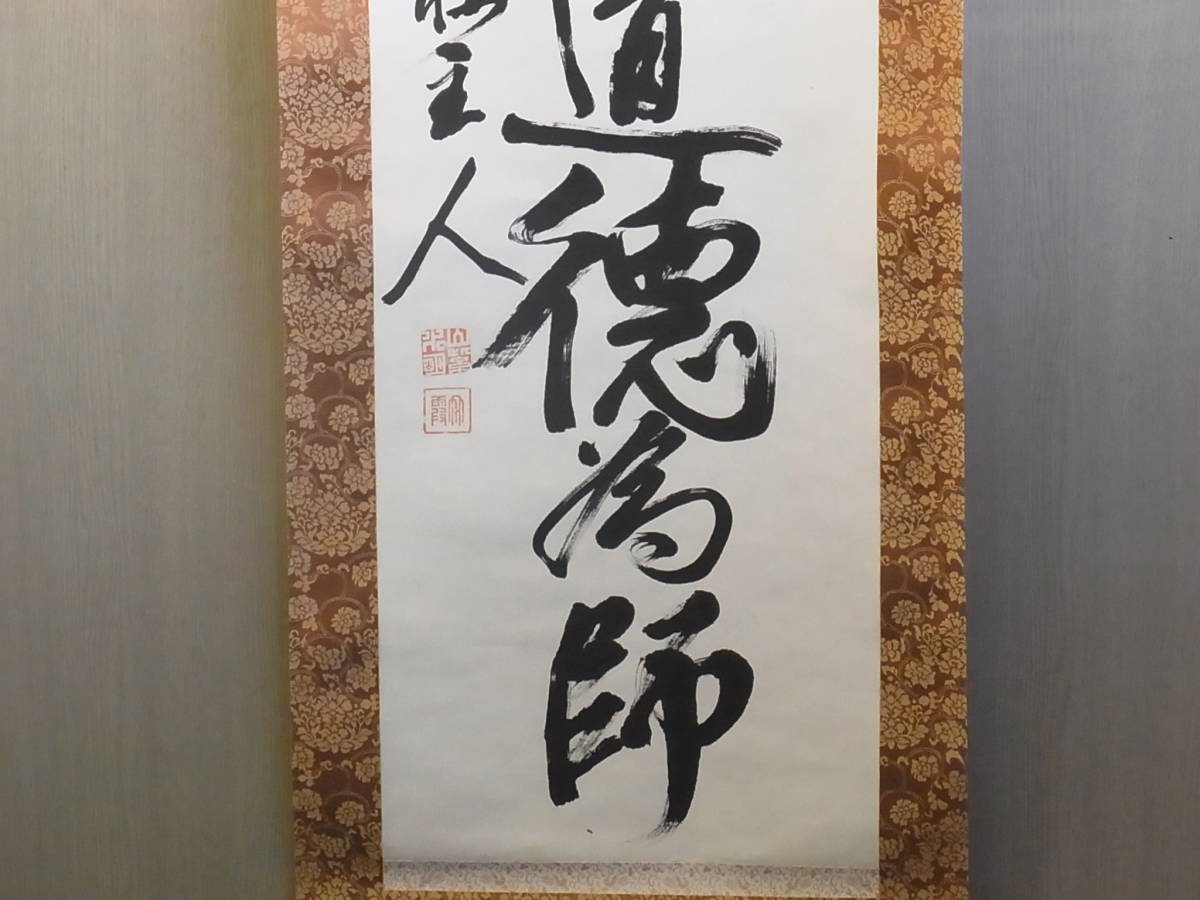 道德為師
主人